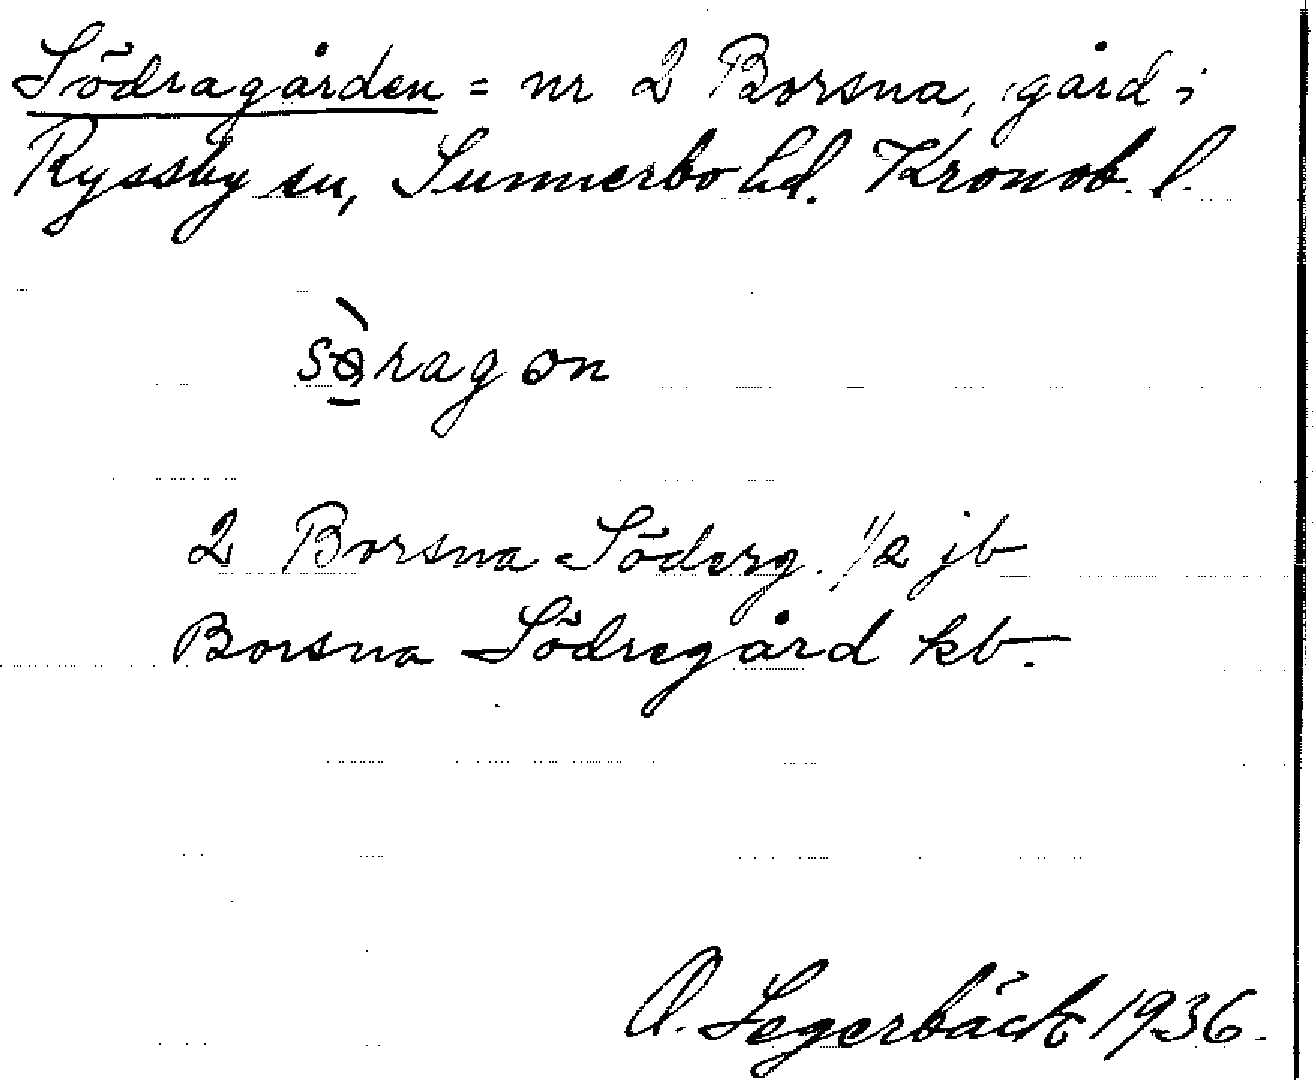 Södragården = nr 2 Borsna, gård i
Ryssby sn, Sunnerbo hd. Kronob. l.
sɵ̀ragɔn
2 Borsna Söderg. 1/2 jb
Borsna Södregård kb.
A. Segerbäck 1936.